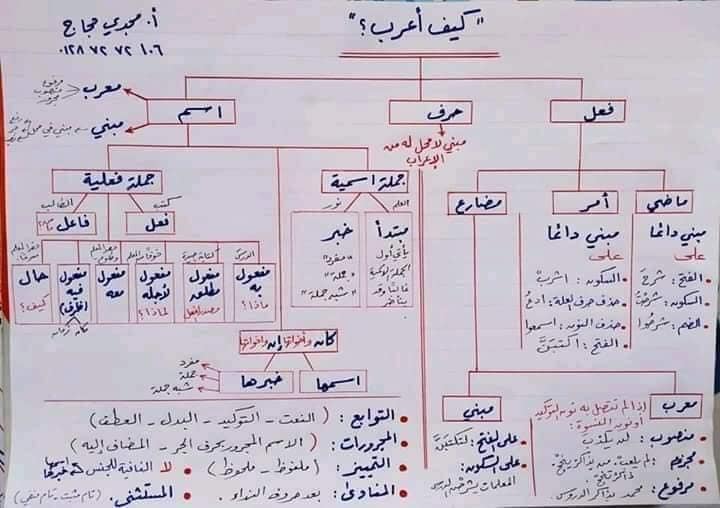 "كيف أعرب؟"
أ. مجدي حجاج
٠١٢٨ ٧٢ ٧٢ ١٠٦
فعل
حرف
اسم
مبني لا محل له من
الإعراب
معرب
مرفوع
منصوب
مجرور
مبني
ماضي
مبني دائما
على
• الفتح: شرحَ
• السكون: شرحْتُ
• الضم: شرحُوا
أمر
مبني دائما
على
• السكون: اشربْ
• حذف حرف العلة: ادعُ
• حذف النون: اسمعوا
• الفتح: اكتبَنَّ
مضارع
معرب
إذا لم تتصل به نون التوكيد
أو نون النسوة:
• منصوب: لن يكذبَ
• مجزوم:
• مرفوع: محمد يذاكر الدروس
مبني
على الفتح: لتكتبَنَّ
على السكون:
المعلمات يشرحْن الدرس
جملة اسمية
العلم
نور
مبتدأ
يأتي أول
الجملة الاسمية
غالبا وقد
يتأخر
خبر
"مفرد"
"جملة"
"شبه جملة"
جملة فعلية
كتب
الطالب
فعل
فاعل
الدرس
مفعول
به
ماذا؟
كتابة
مفعول
مطلق
مصدر الفعل
خوفًا من المعلم
مفعول
لأجله
لماذا؟
مفعول
معه
مفعول
فيه
(ظرف)
مكان زمان
حال
كيف؟
كان وأخواتها
إن وأخواتها
اسمها
خبرها
مفرد
جملة
شبه جملة
• التوابع: (النعت - التوكيد - البدل - العطف)
• المجرورات: (الاسم المجرور بحرف الجر - المضاف إليه)
• التمييز: (ملفوظ - ملحوظ)
• لا النافية للجنس اسمها خبرها
• المنادى: بعد حروف النداء.
• المستثنى. (تام مثبت - تام منفي)